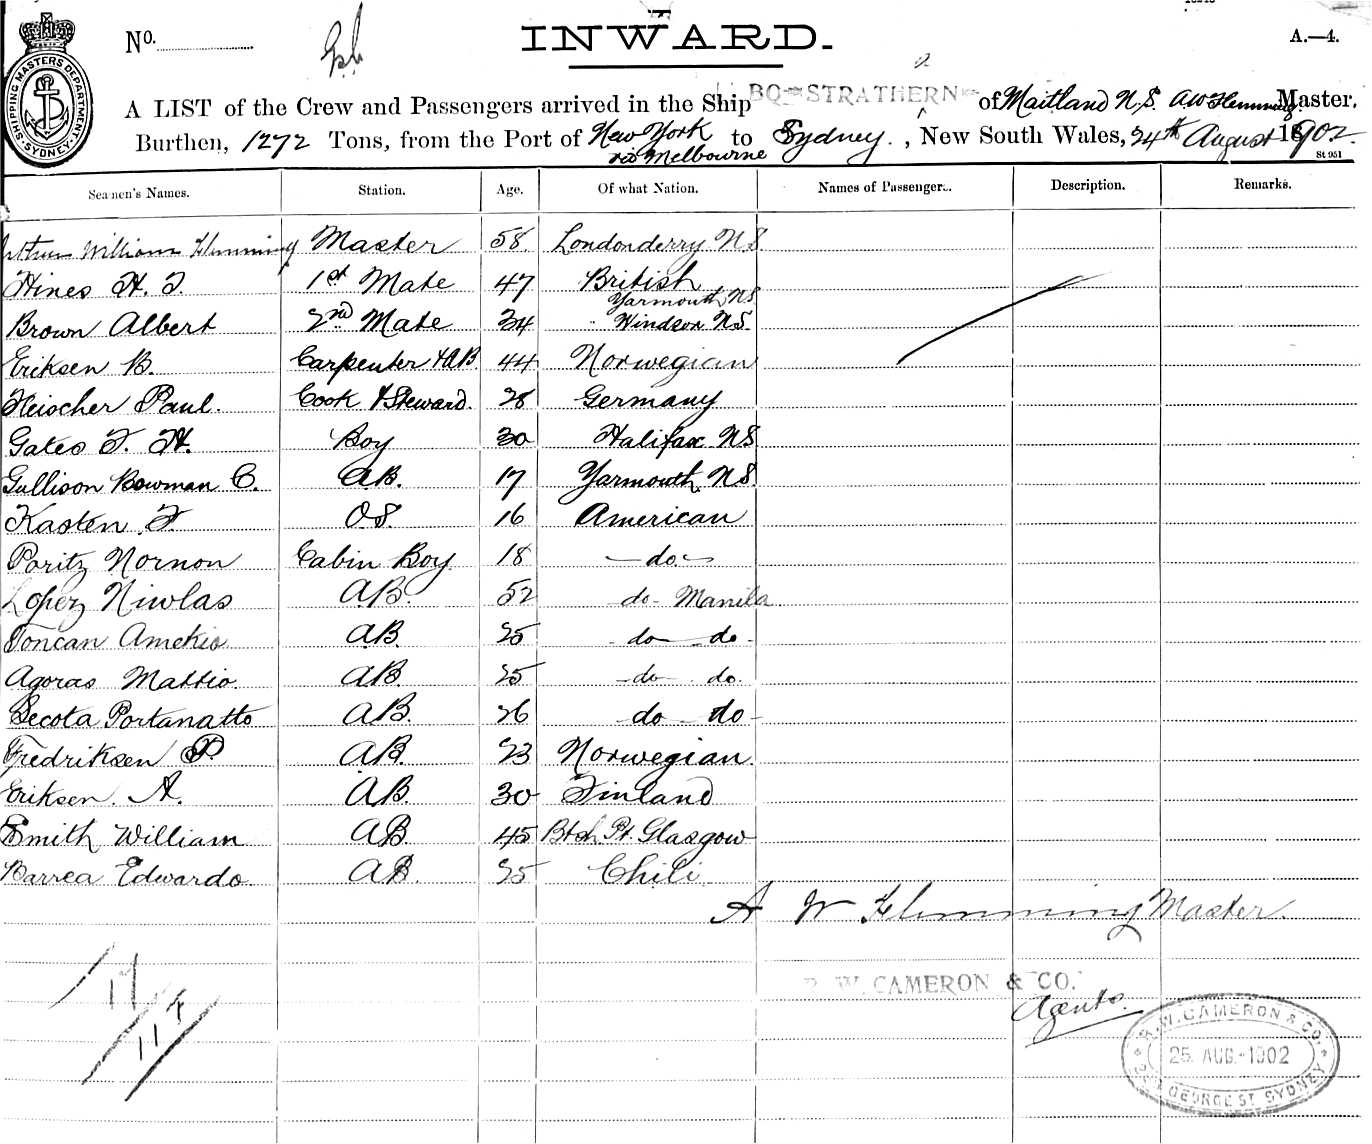 INWARD.
No.
A.—4.
SHIPPING MASTERS DEPARTMENT SYDNEY
A LIST of the Crew and Passengers arrived in the Ship BQE STRATHERN of Maitland N.S. A W Flemming Master,
Burthen, 1272 Tons, from the Port of New York via Melbourne to Sydney, New South Wales, 24th August 1902
St 951
Seamen's Names. Station. Age. Of what Nation. Names of Passenger. Description. Remarks.
Arthur William Flemming Master 58 Londonderry N.S
Hines H. F. 1st Mate 47 British Yarmouth NS
Brown Albert 2nd Mate 34 " Windsor N.S.
Eriksen B. Carpenter & AB 44 Norwegian
Fleischer Paul. Cook & Steward. 28 Germany
Gates F. H. Boy 30 Halifax NS
Gullison Bowman C. A.B. 17 Yarmouth N.S.
Kasten F. O.S. 16 American
Poritz Nornon Cabin Boy 18 - do -
Lopez Niwlas A.B. 52 - do - Manila
Toncan Amekio A.B. 25 - do - do -
Agoras Mattio. A.B. 25 - do - do.
Secota Portanatto A.B. 26 - do - do -
Fredriksen P AB. 23 Norwegian.
Eriksen. A. A.B. 30 Finland
Smith William A.B. 45 Btsh Pt Glasgow
Barrea Edwardo AB. 25 Chili
A W Flemming Master.
R. W. CAMERON & CO.
Agents.
17
11 F
R.W. CAMERON & CO.
25 AUG. 1902
GEORGE ST SYDNEY